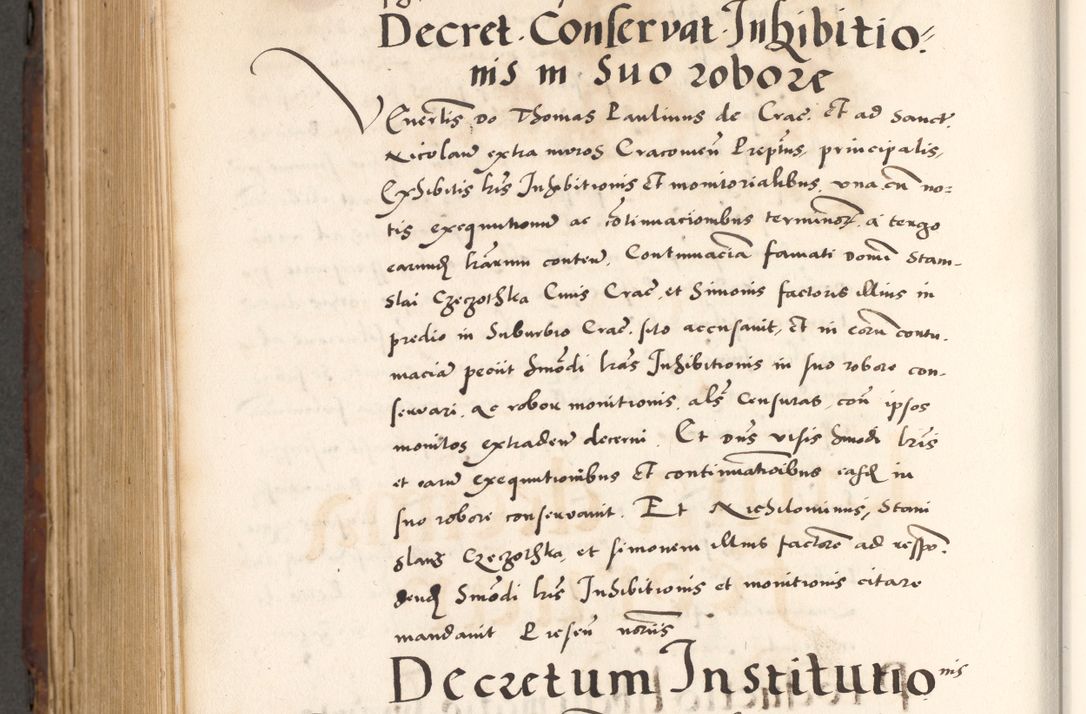 Decret. Conservat. Inhibitio=
nis in suo robore
Venerlis Do Thomas Paulinus de Crac. Et ad Sanct.
Nicolaum extra muros Cracovien Preptus, principalis,
Exhibitis lris Inhibitionis Et monitorialibus, una cu no=
tis exequutionum ac cotinuacionibus terminor, a tergo
earund lrarum conten, Contumacia famati Domi Stani-
slai Czeczothka Civis Crac, et Simonis factoris illius in
predio in Suburbio Crac. sito accusavit, Et in coru contu-
macia petiit hmodi lras Inhibitionis in suo robore con-
servari, ac robori monitionis, als Censuras, con ipsos
monitos extraden decerni. Et Dns visis hmodi lris
et earum exequutionibus Et continuationibus easd in
suo robore conservavit. Et Nichilominus, Stani
slaus Czeczothka, et simonem illius factore ad respo.
dend hmodi lris Inhibitionis et monitionis citare
mandavit Presen notariis
Decretum Institutionis